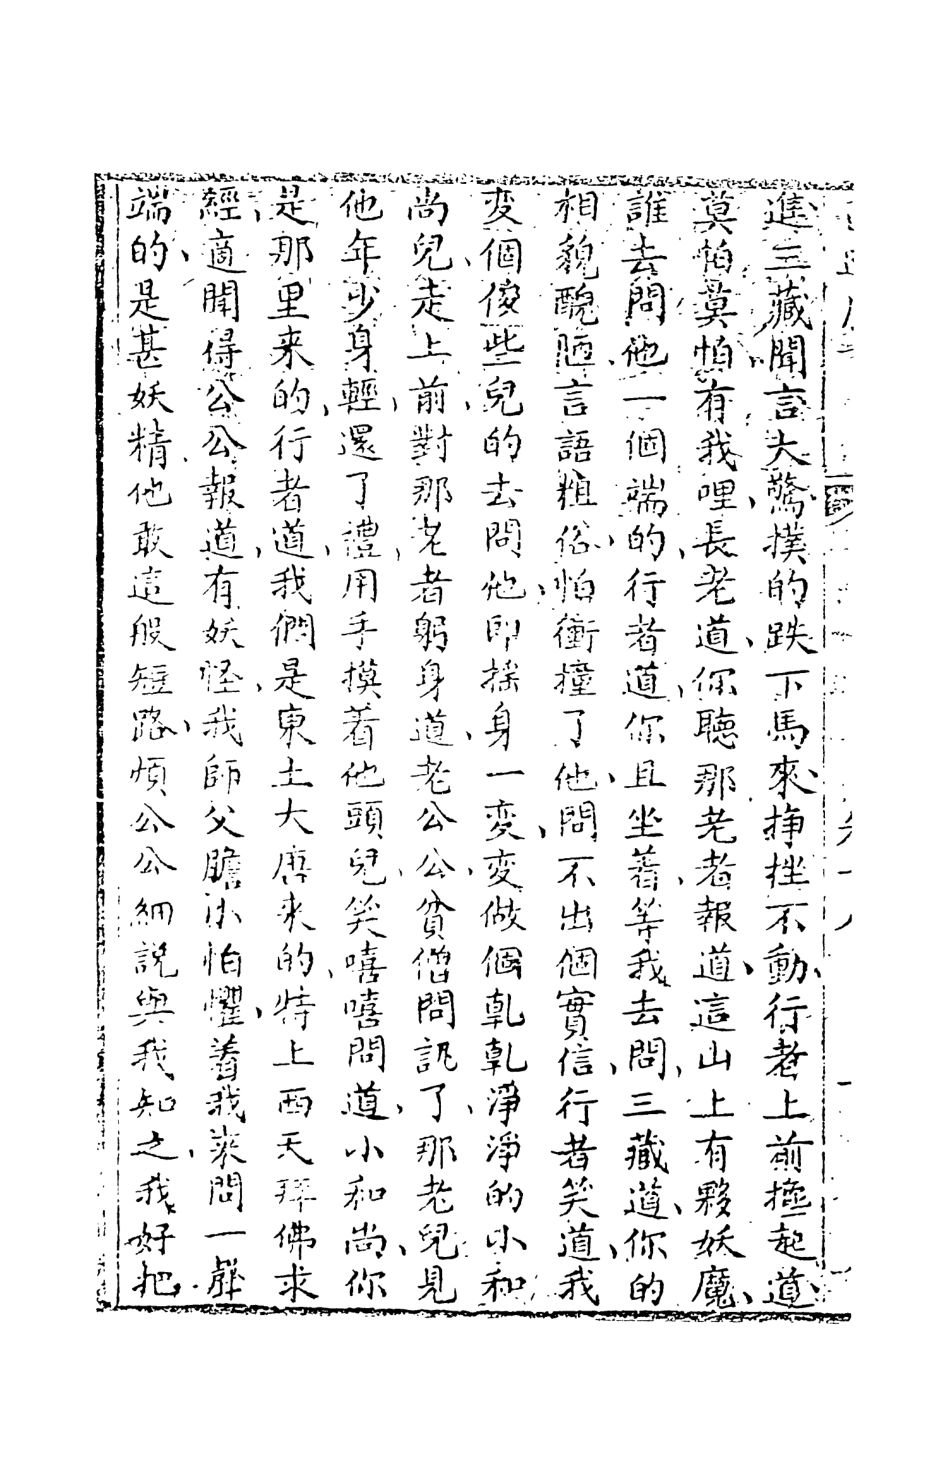 進三藏聞言大驚撲的跌下馬來掙挫不動行者上前攙起道
莫怕莫怕有我哩長老道你聽那老者報道這山上有夥妖魔
誰去問他一個端的行者道你且坐着等我去問三藏道你的
相貌醜陋言語粗俗怕衝撞了他問不出個實信行者笑道我
変個俊些兒的去問他即搖身一変変做個乹乹淨淨的小和
尚兒走上前對那老者躬身道老公公貧僧問訊了那老兒見
他年少身輕還了禮用手摸着他頭兒笑嘻嘻問道小和尚你
是那里来的行者道我們是東土大唐來的特上西天拜佛求
經適聞得公公報道有妖怪我師父膽小怕懼着我來問一聲
端的是甚妖精他敢這般短路煩公公細說與我知之我好把